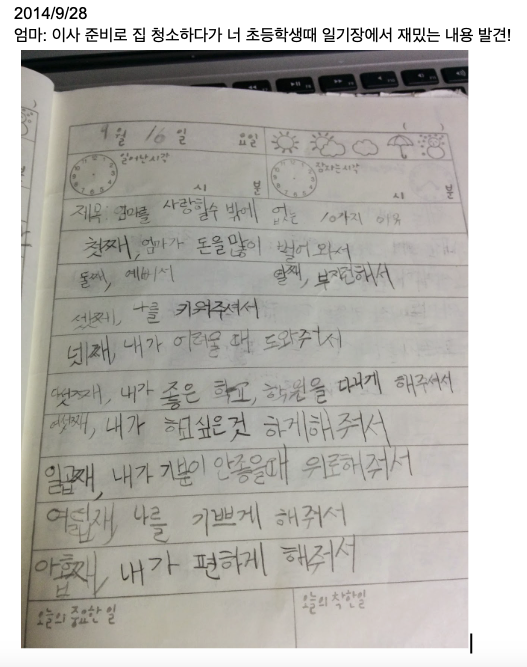 2014/9/28
엄마: 이사 준비로 집 청소하다가 너 초등학생때 일기장에서 재밌는 내용 발견!
9월 16일 요일
일어난시각 시 분
잠자는시각 시 분
제목: 엄마를 사랑할수 밖에 없는 10가지 이유
첫째, 엄마가 돈을많이 벌어 와서
둘째, 예뻐서 열째, 부지런해서
셋째, 나를 키워주셔서
넷째, 내가 어려울 때 도와주셔서
다섯째, 내가 좋은 학교, 학원을 다니게 해주셔서
여섯째, 내가 하고싶은것 하게해줘서
일곱째, 내가 기분이 안좋을때 위로해줘서
여덟재, 나를 기쁘게 해줘서
아홉째, 내가 편하게 해줘서
오늘의 중요한 일
오늘의 착한일